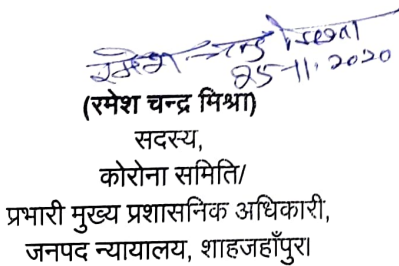 रमेश चन्द्र मिश्रा
25-11-2020
(रमेश चन्द्र मिश्रा)
सदस्य,
कोरोना समिति/
प्रभारी मुख्य प्रशासनिक अधिकारी,
जनपद न्यायालय, शाहजहाँपुर।